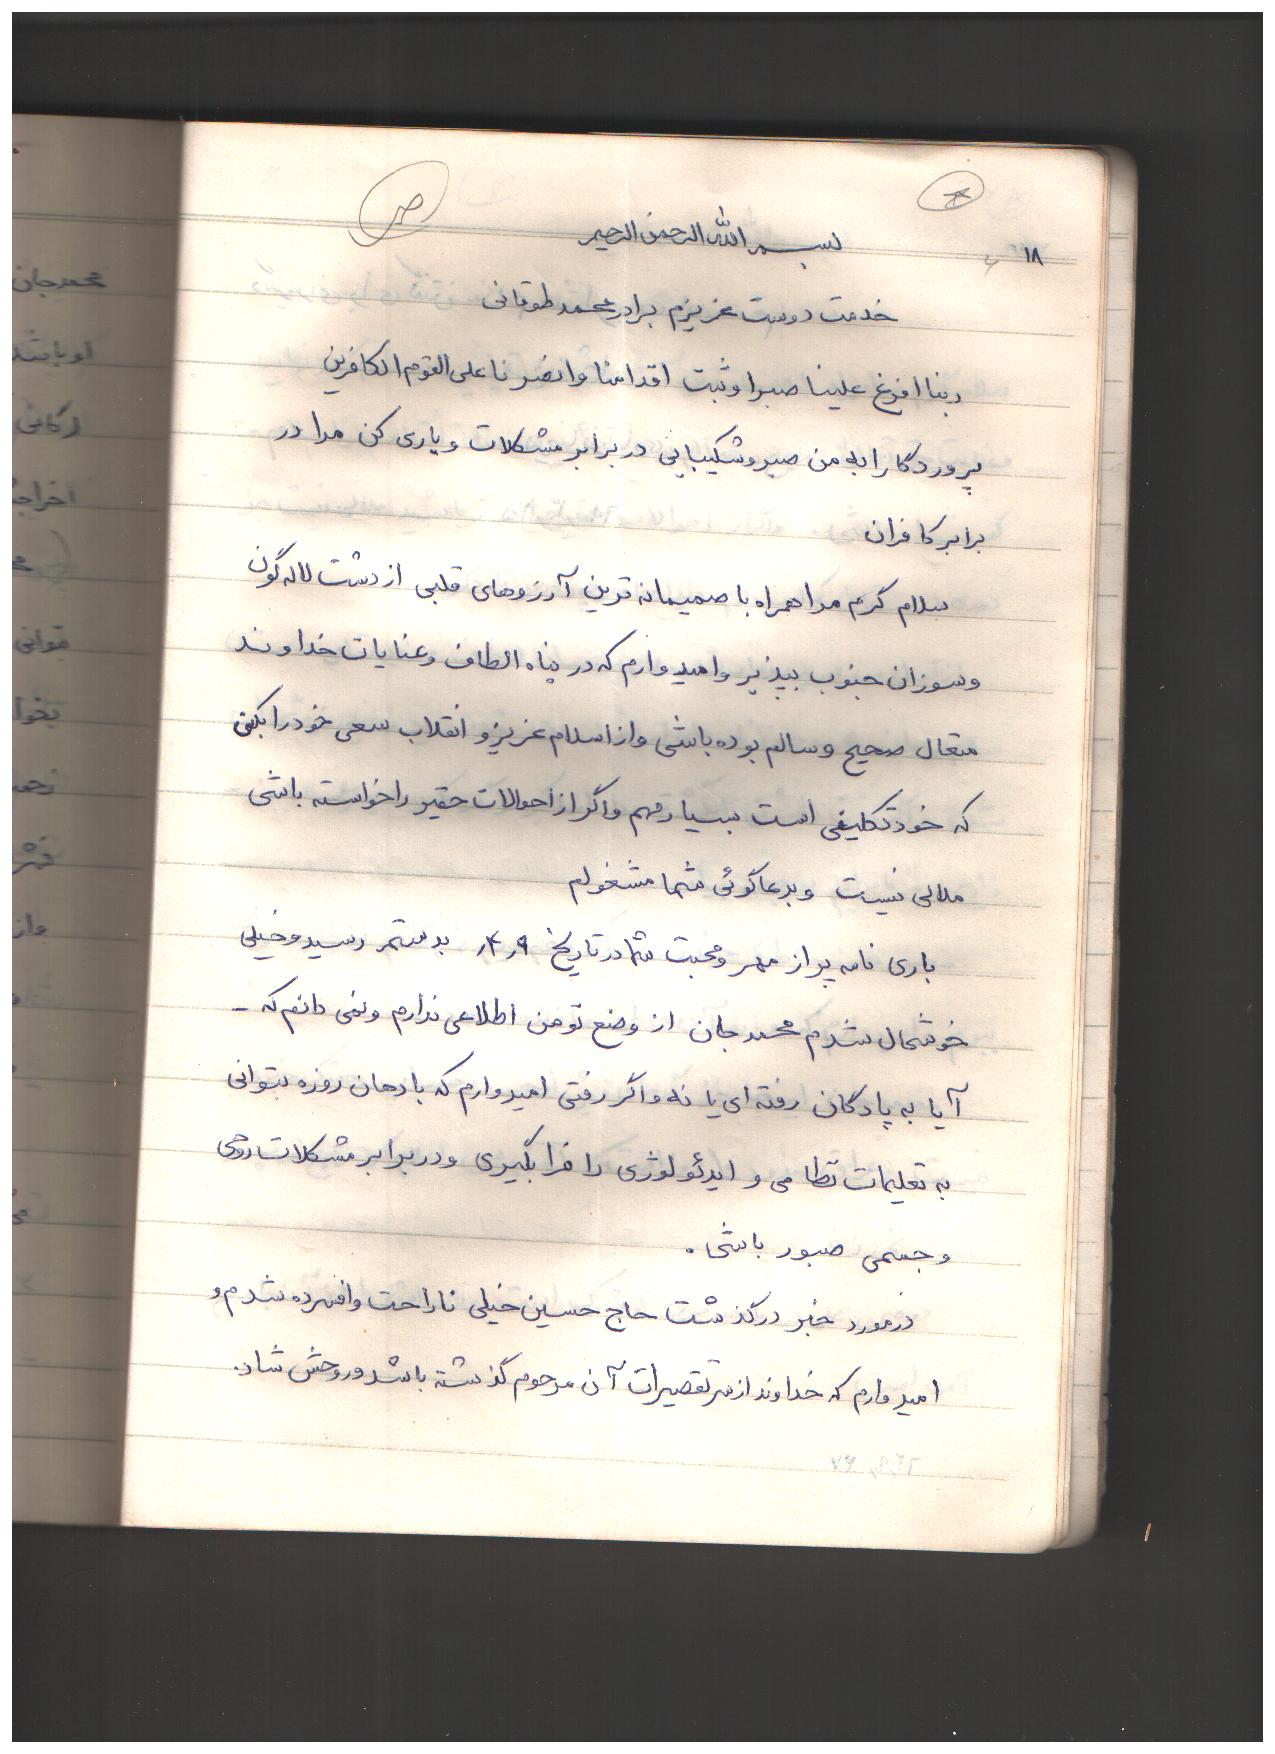 ۱۸
بسم الله الرحمن الرحیم
خدمت دوست عزیزم برادر محمد طوقانی
ربنا افرغ علینا صبرا وثبت اقدامنا وانصرنا علی القوم الکافرین
پروردگارا به من صبر و شکیبایی در برابر مشکلات و یاری کن مرا در
برابر کافران
سلام گرم مرا همراه با صمیمانه ترین آرزوهای قلبی از دشت لاله گون
وسوزان جنوب بپذیر و امیدوارم که در پناه الطاف و عنایات خداوند
متعال صحیح و سالم بوده باشی و از اسلام عزیز و انقلاب سعی خود را بکنی
که خود تکلیفی است بسیار مهم و اگر از احوالات حقیر را خواسته باشی
ملالی نیست وبدعاگوئی شما مشغولم
باری نامه پر از مهر و محبت شما در تاریخ ۴٫۹ بدستم رسید و خیلی
خوشحال شدم محمد جان از وضع تو من اطلاعی ندارم و نمی دانم که -
آیا به پادگان رفته ای یا نه و اگر رفتی امیدوارم که با دهان روزه بتوانی
به تعلیمات نظامی و ایدئولوژی را فرا بگیری و در برابر مشکلات روحی
و جسمی صبور باشی .
در مورد خبر درگذشت حاج حسین خیلی ناراحت و افسرده شدم و
امیدوارم که خداوند از سر تقصیرات آن مرحوم گذشته باشد و روحش شاد.
محمد جان